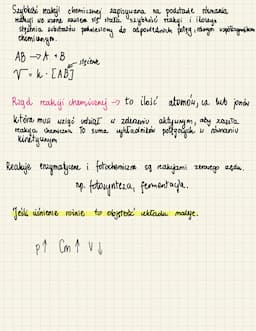 Szybkość reakcji chemicznej zapisywana na podstawie równania
reakcji
stężenia substratów podniesiony do odpowiednich potęg, równym współczynnikom
chemicznym.
AB → A + B
V = k · [AB] stężenie
Rząd reakcji chemicznej → to ilość atomów, cz. lub jonów
która musi wziąć udział w zderzeniu aktywnym, aby zaszła
reakcja chemiczna. To suma wykładników potęgowych w równaniu
kinetycznym
Reakcje enzymatyczne i fotochemiczne są reakcjami zerowego rzędu.
np. fotosynteza, fermentacja.
Jeśli ciśnienie rośnie to objętość układu maleje.
p↑ Cm↑ V↓